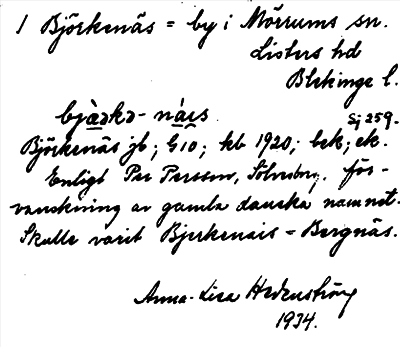 1 Björkenäs = by i Mörrums sn.
Listers hd
Blekinge l.
bjàrkə-nä́es Sj 259.
Björkenäs jb; G10; kb 1920; bek; ek.
Enligt Per Persson, Sölvesbg, för-
vanskning av gamla danska namnet.
Skulle varit Bjerkenais = Bergnäs.
Anna-Lisa Hedenström
1934.